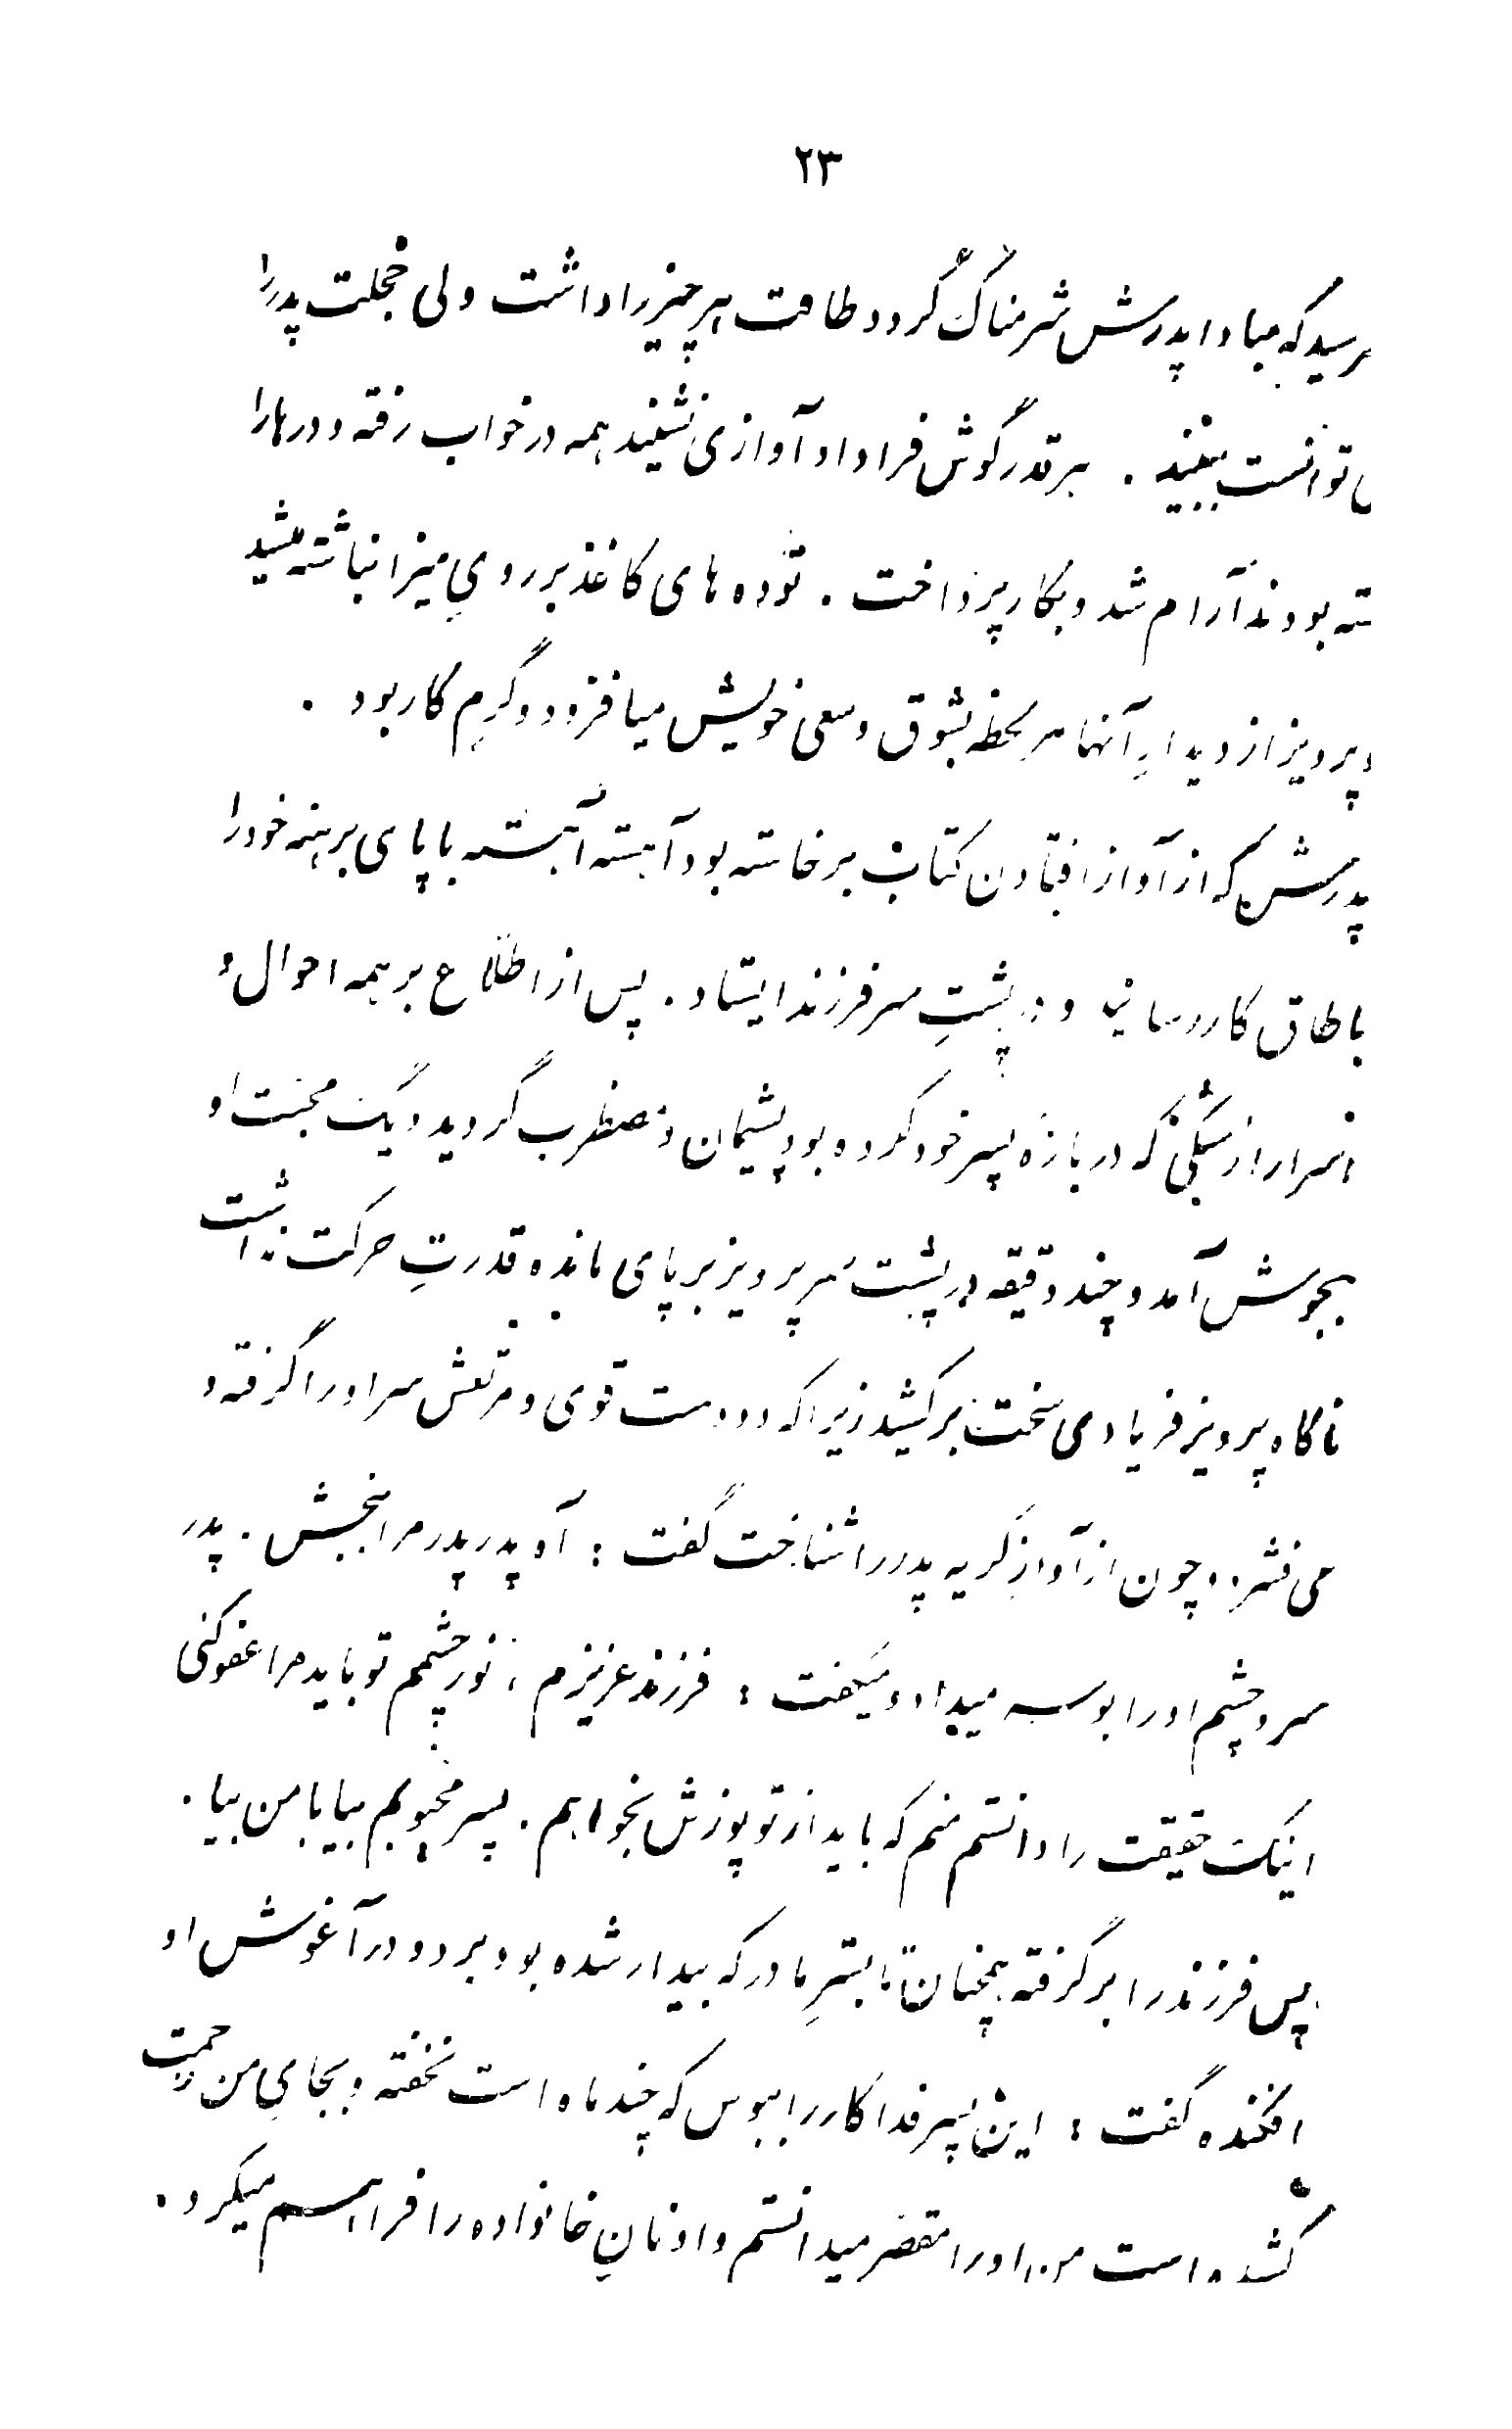 ۲۳
رسید که مبادا پدرش شرمناک گردد طاقت هر چیز را داشت ولی خجلت پدر را
توانست ببیند . هر قدر گوش فرا داد آوازی نشنید همه در خواب رفته و درها را
بسته بودند آرام شد و بکار پرداخت . توده های کاغذ بر روی میز انباشته میشد
و پرویز از دیدارِ آنها هر لحظه بشوق و سعی خویش میافزود و گرم کار بود .
پدرش که از آواز افتادن کتاب برخاسته بود آهسته آهسته با پای برهنه خود را
باطاق کار رسانید و در پشتِ سر فرزند ایستاد . پس از اطلاع بر همه احوال و
اسرار از که دربارهٔ پسر خود کرده بود پشیمان و مضطرب گردید و محبت او
بجوش آمد و چند دقیقه در پشت سر پرویز بر پای مانده قدرتِ حرکت نداشت
ناگاه پرویز فریادی سخت برکشید زیرا که دو دست قوی و مرتعش سر او را گرفته و
می فشرد و چون از آوازِ گریه پدر را شناخت گفت : آه پدر پدر مرا ببخش . پدر
سر و چشم او را بوسه میداد و میگفت : فرزند عزیزم ، نور چشمم تو باید مرا عفو کنی
اینک حقیقت را دانستم منم که باید از تو پوزش بخواهم . پسر محبوبم بیا با من بیا .
پس فرزند را برگرفته همچنان تا بسترِ مادر که بیدار شده بود برد و در آغوش او
افکنده گفت : این پسر فداکار را ببوس که چند ماه است نخفته و بجایِ من زحمت
کشیده است من او را مقصر میدانستم و او نانِ خانواده را فراهم میکرد .